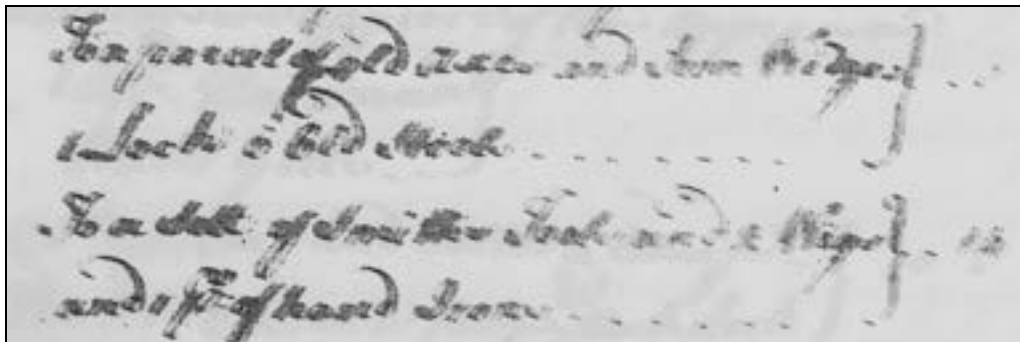 To a parcel of old axes and Iron Wedges
1 Lock & 6 old
To a Sett of Smiths Tools and
and 1 pr of hand Irons